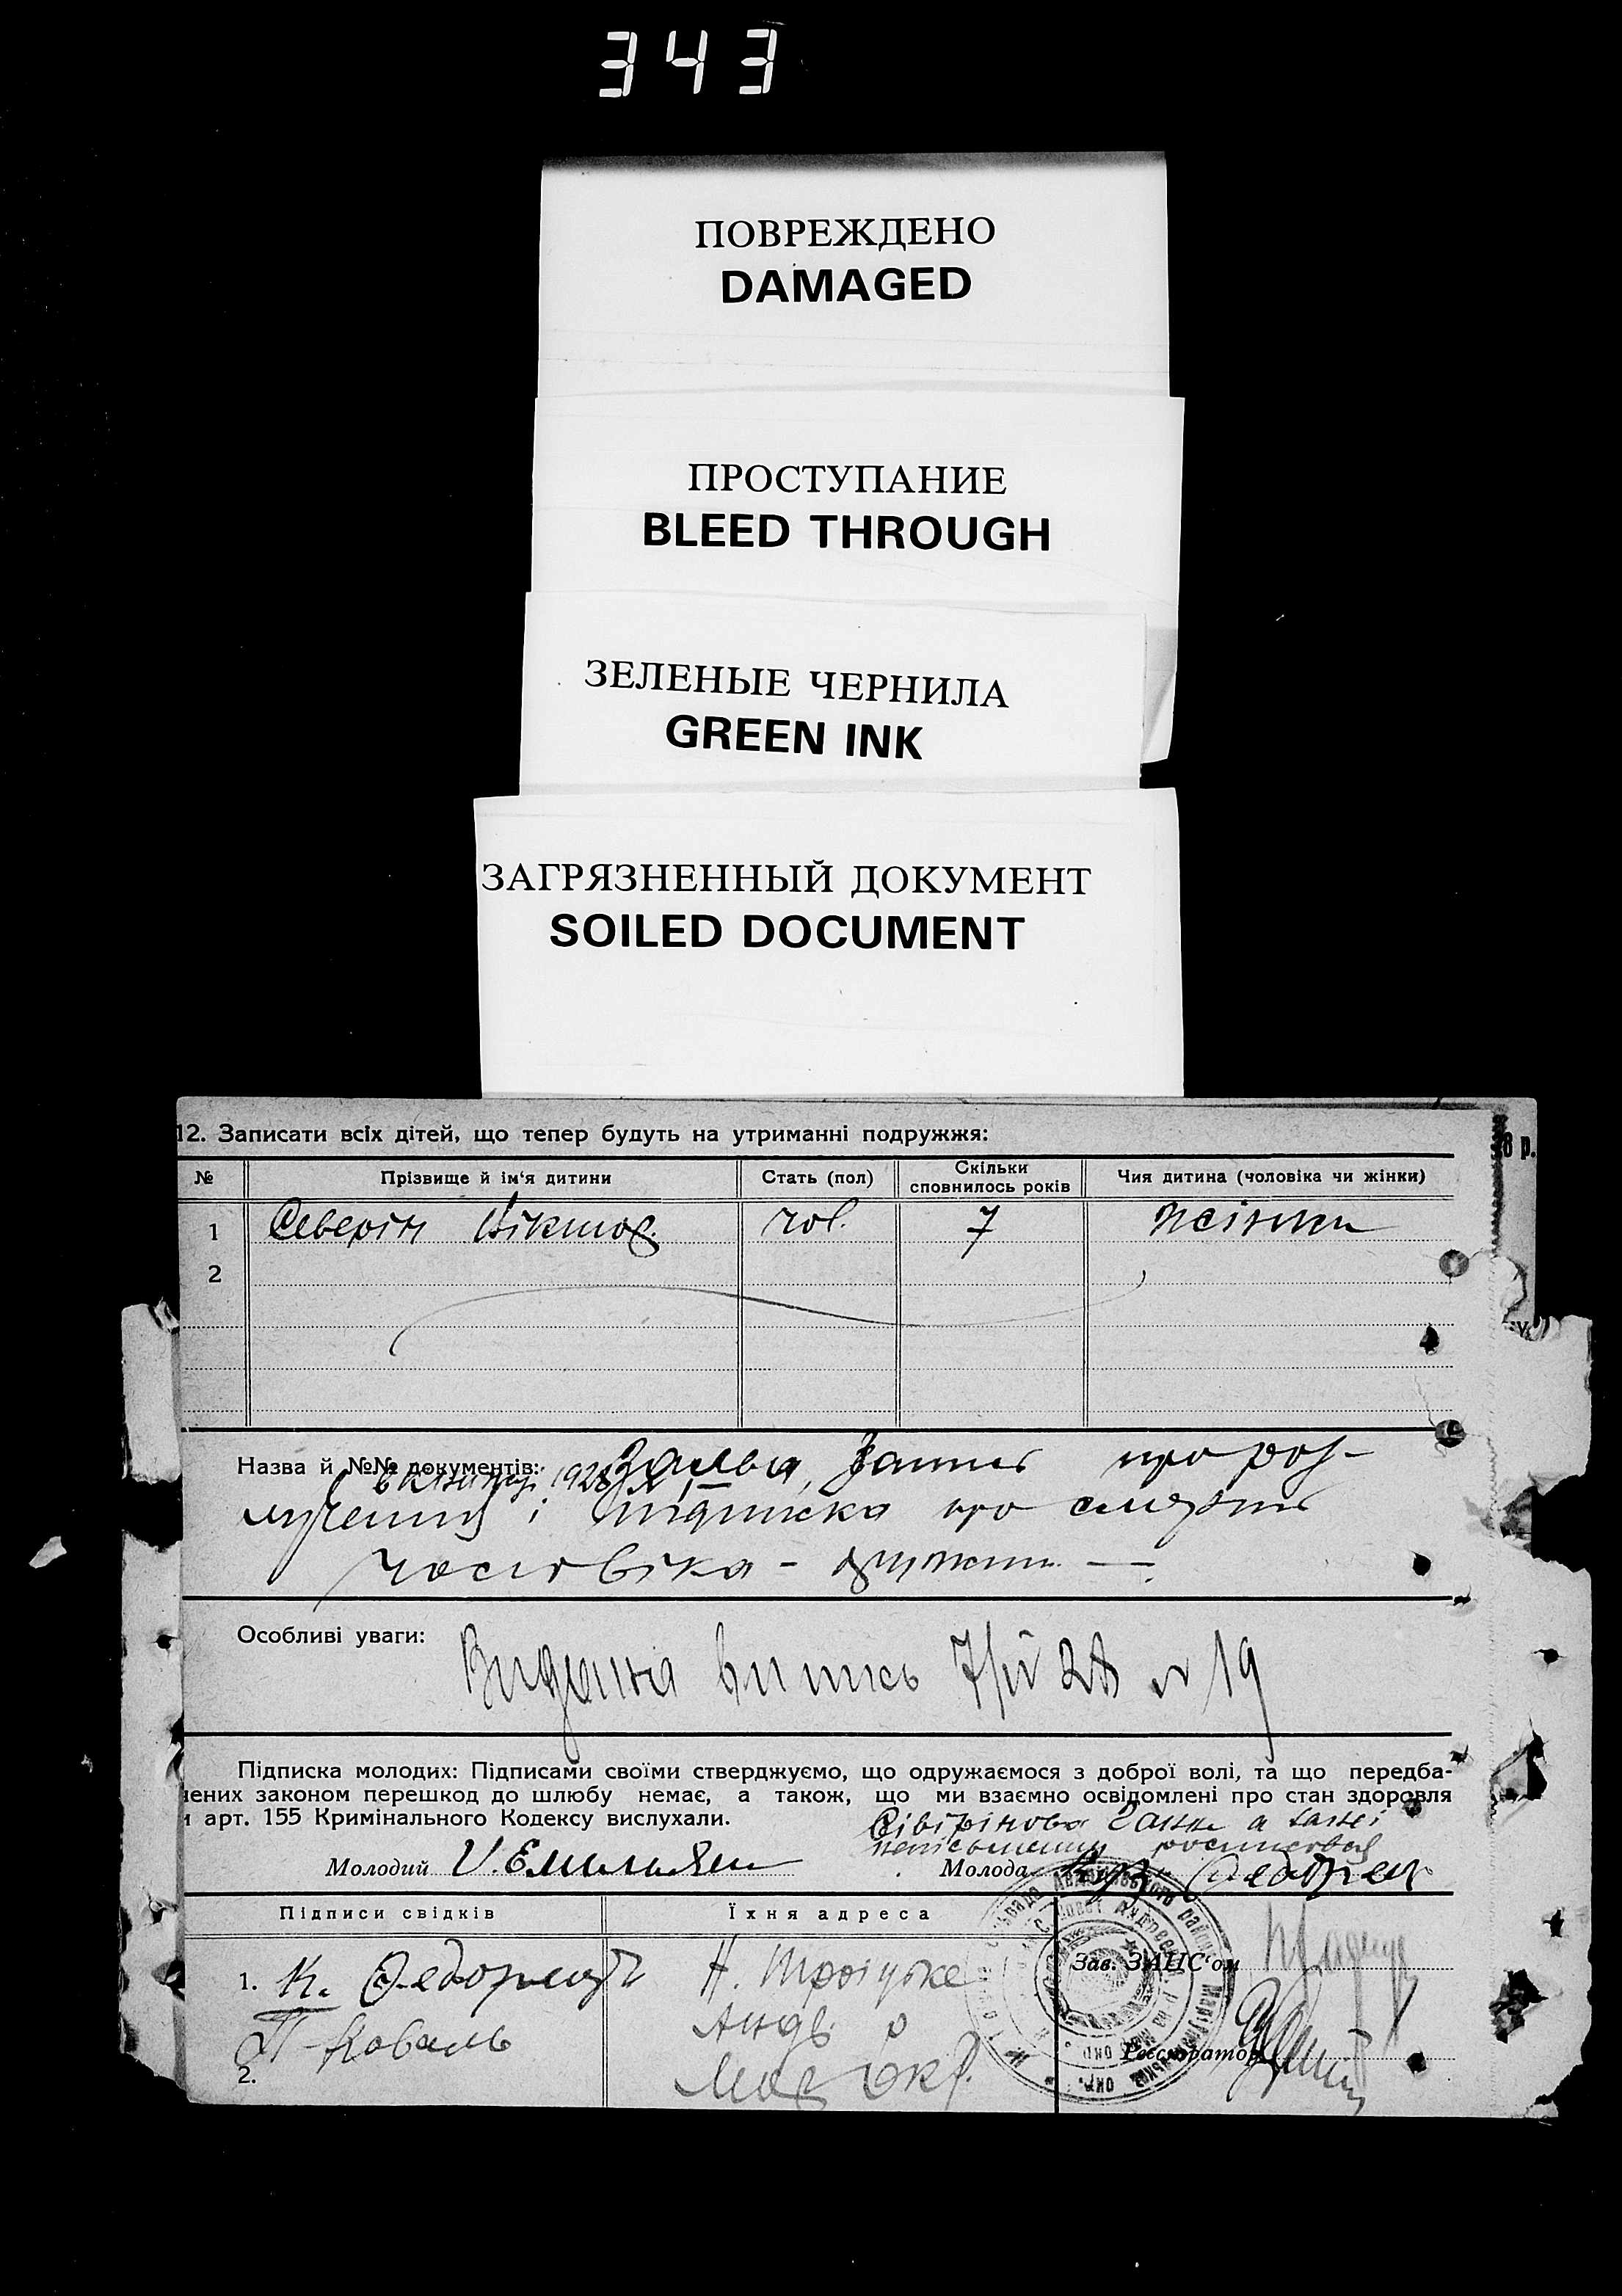 343
ПОВРЕЖДЕНО
DAMAGED
ПРОСТУПАНИЕ
BLEED THROUGH
ЗЕЛЕНЫЕ ЧЕРНИЛА
GREEN INK
ЗАГРЯЗНЕННЫЙ ДОКУМЕНТ
SOILED DOCUMENT
12. Записати всіх дітей, що тепер будуть на утриманні подружжя:
8 р.
№ Прізвище й ім'я дитини Стать (пол) Скільки сповнилось років Чия дитина (чоловіка чи жінки)
1 Северін Віктор. чол. 7 жінки
2
Назва й №№ документів: Заява, Запис про роз-
лучения і підписка про смерть
чоловіка - дружини
Особливі уваги: Видана випись 28 № 19
Підписка молодих: Підписами своїми стверджуємо, що одружаємося з доброї волі, та що передба-
чених законом перешкод до шлюбу немає, а також, що ми взаємно освідомлені про стан здоровля
и арт. 155 Кримінального Кодексу вислухали.
неписьменни росписався
Молодий Молода
Підписи свідків Їхня адреса
Зав. ЗАПС'ом
1. К. Федорещук
П Коваль
2.
Андр р
Мар окр.
Реєстратор